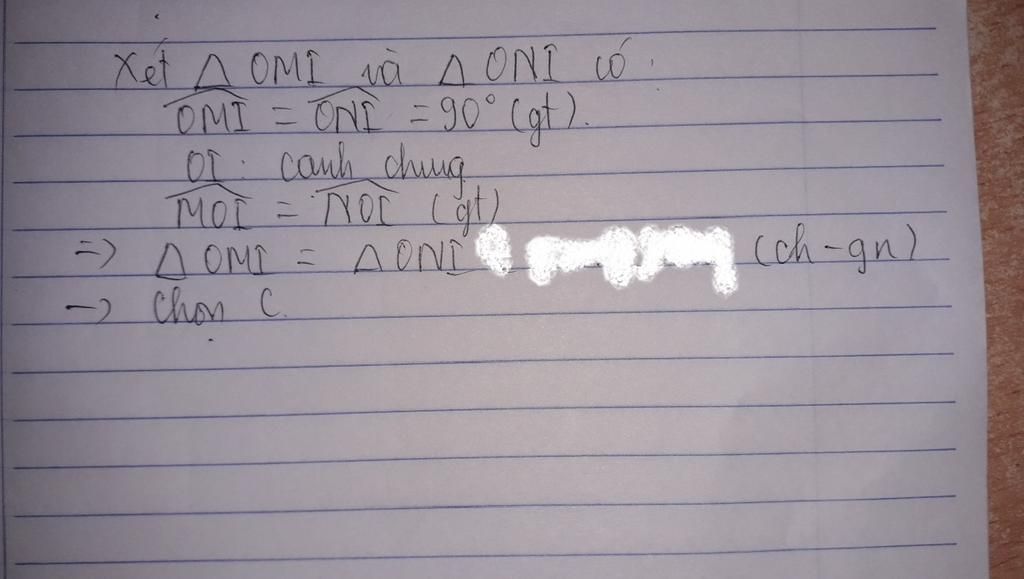 Xét △ OMI và △ ONI có.
\widehat{OMI} = \widehat{ONI} = 90° (gt).
OI: cạnh chung
\widehat{MOI} = \widehat{NOI} (gt)
=> △ OMI = △ ONI (ch-gn)
-> Chọn C.